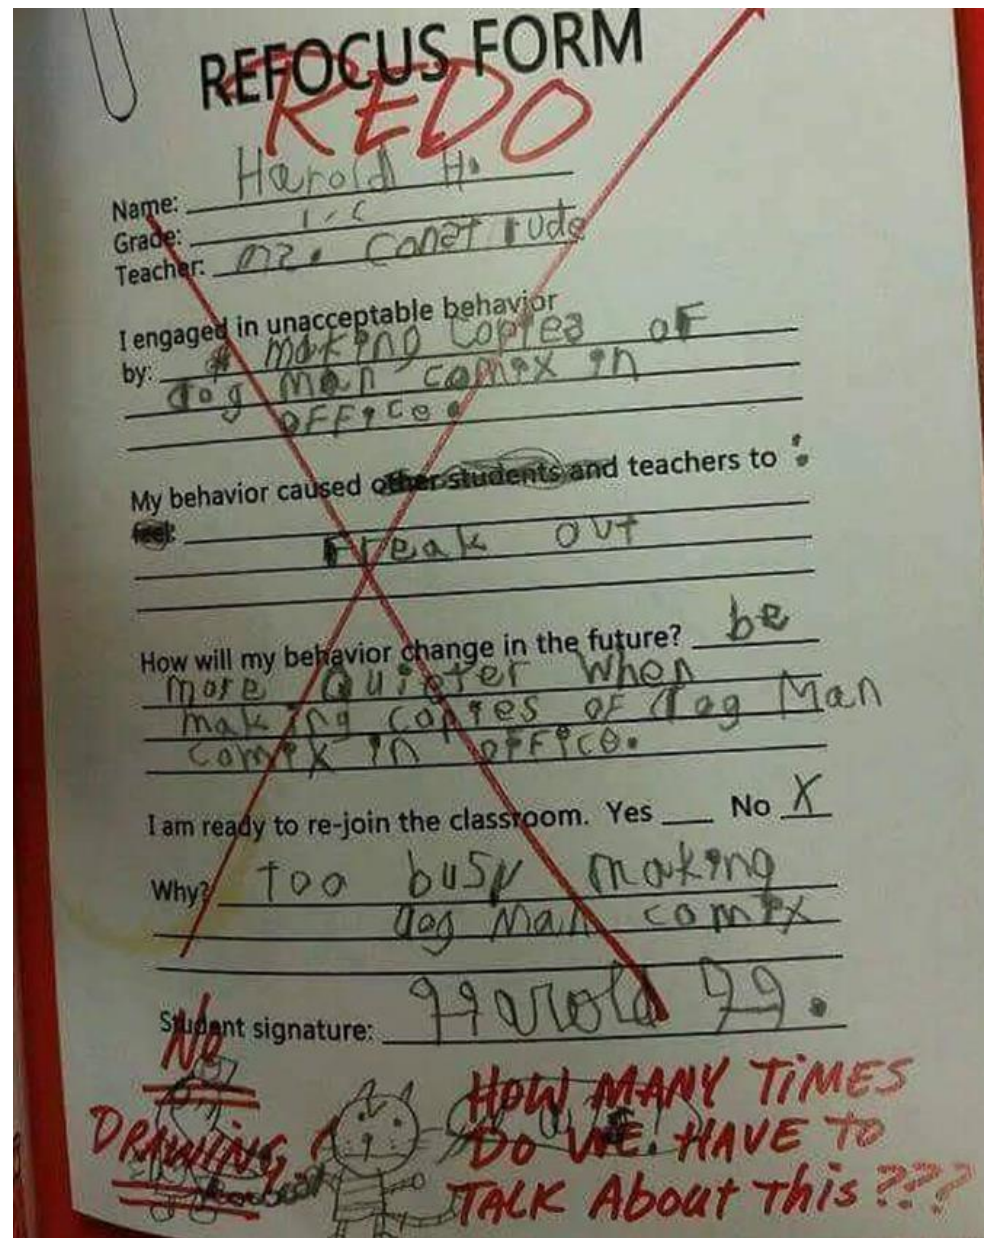 REFOCUS FORM
REDO
Name: Harold H.
Grade:
Teacher: mz. Construde
I engaged in unacceptable behavior
by: making copies of
dog man comix in
office.
My behavior caused other students and teachers to :
feel:
Freak out
How will my behavior change in the future? be
more Quieter When
making copies of dog Man
comix in office.
I am ready to re-join the classroom. Yes ___ No X
Why? too busy making
dog Man comix
Student signature: Harold H.
No
DRAWING!
HOW MANY TIMES
DO WE HAVE TO
TALK About This ???